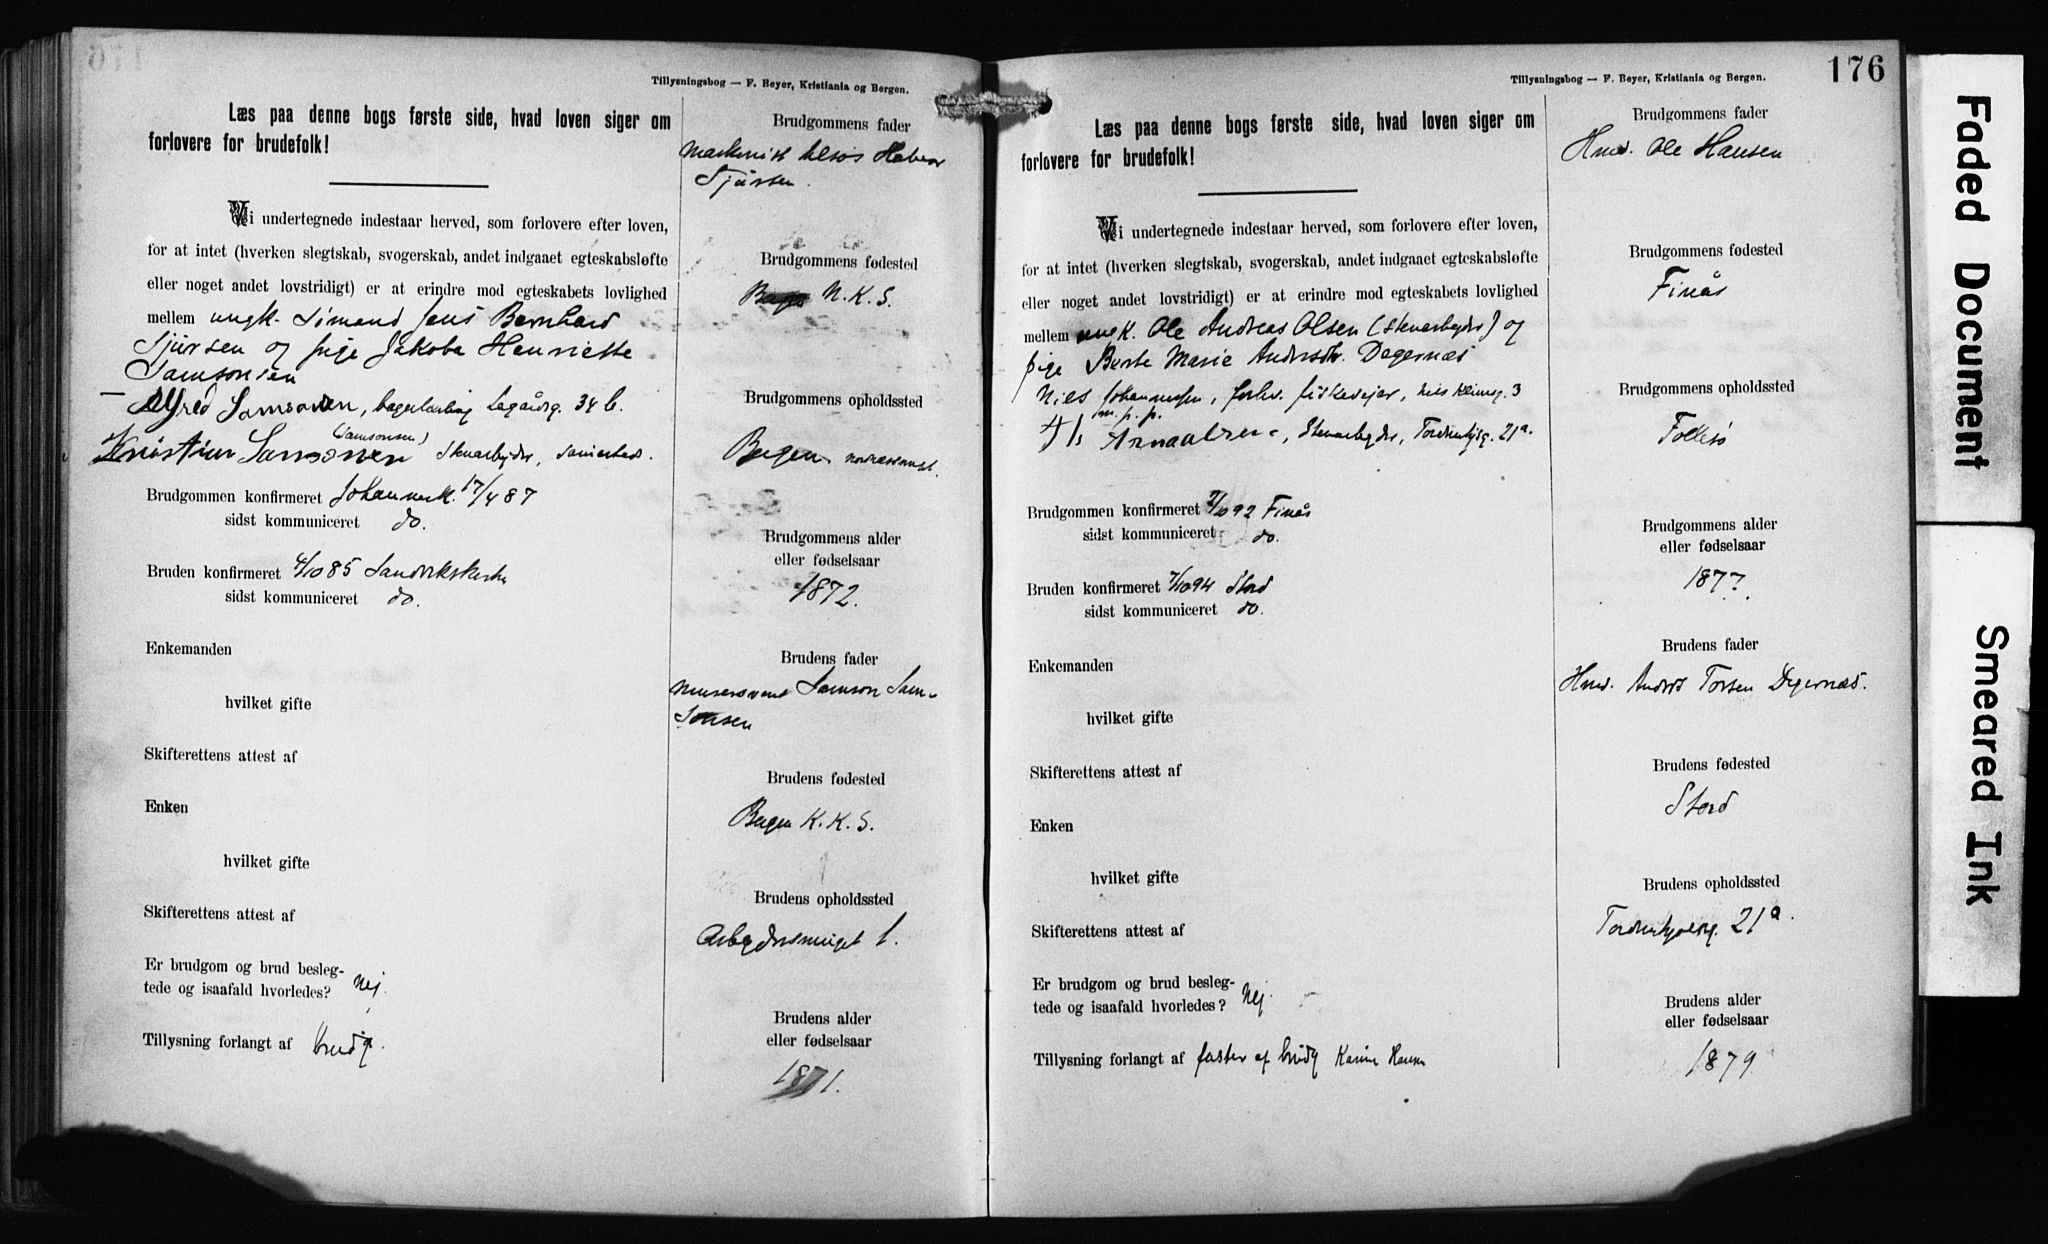 Tillysningsbog — F. Beyer, Kristiania og Bergen.
Læs paa denne bogs første side, hvad loven siger om
forlovere for brudefolk!
Vi undertegnede indestaar herved, som forlovere efter loven,
for at intet (hverken slegtskab, svogerskab, andet indgaaet egteskabsløfte
eller noget andet lovstridigt) er at erindre mod egteskabets lovlighed
mellem ungk. Simund Jens Bernhard
Sjursen og pige Jakoba Henriette
Samsonsen
Alfred Samsonsen, bagerlærling Legårdsg. 34 b.
(Samsonsen)
Kristian Samsonsen Stenarbejder,
Brudgommen konfirmeret Johannesk. 17/4 87
sidst kommuniceret do.
Bruden konfirmeret 4/10 85 Sandvikskirke
sidst kommuniceret do.
Enkemanden
hvilket gifte
Skifterettens attest af
Enken
hvilket gifte
Skifterettens attest af
Er brudgom og brud besleg-
tede og isaafald hvorledes? Nej.
Tillysning forlangt af brudg.
Brudgommens fader
Sjursen.
Brudgommens fødested
N. K. S.
Brudgommens opholdssted
Bergen
Brudgommens alder
eller fødselsaar
1872.
Brudens fader
Murersvend Samson Sam-
sonsen
Brudens fødested
Bergen K. K. S.
Brudens opholdssted
Arbejdersmuget 1.
Brudens alder
eller fødselsaar
1871.
176
Tillysningsbog — F. Beyer, Kristiania og Bergen.
Læs paa denne bogs første side, hvad loven siger om
forlovere for brudefolk!
Vi undertegnede indestaar herved, som forlovere efter loven,
for at intet (hverken slegtskab, svogerskab, andet indgaaet egteskabsløfte
eller noget andet lovstridigt) er at erindre mod egteskabets lovlighed
mellem ungk. Ole Andreas Olsen (stenarbejder) og
pige Berte Marie Andersdtr. Degernæs
Niels Johannessen, forhv. fiskevejer, Niels Klimsg. 3
m. p. p.
Stenarbejder, Tordenskjg. 21a.
Brudgommen konfirmeret 2/10 92 Finås
sidst kommuniceret do.
Bruden konfirmeret 7/10 94 Stord
sidst kommuniceret do.
Enkemanden
hvilket gifte
Skifterettens attest af
Enken
hvilket gifte
Skifterettens attest af
Er brudgom og brud besleg-
tede og isaafald hvorledes? Nej.
Tillysning forlangt af faster af brudg Karine Hansen
Brudgommens fader
Hmd. Ole Hansen
Brudgommens fødested
Finås
Brudgommens opholdssted
Follesø
Brudgommens alder
eller fødselsaar
1877.
Brudens fader
Hmd. Anders Torsen Degernæs.
Brudens fødested
Stord
Brudens opholdssted
Tordenskjoldsg. 21a.
Brudens alder
eller fødselsaar
1879.
Faded Document
Smeared Ink